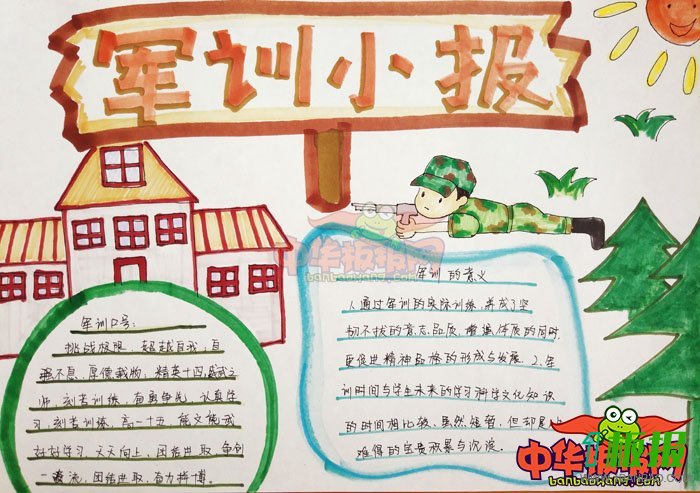 军训小报
中华报报网
banbaowang.com
军训口号:
挑战极限、超越自我,自
强不息、厚德载物,精英十四,威武之
师,刻苦训练,奋勇争先,认真学
习,刻苦训练,高一十五,能文能武
好好学习,天天向上,团结进取,争创
一流,团结进取,奋力拼搏。
军训的意义
1.通过军训的实际训练,养成了坚
韧不拔的意志品质,增强体质的同时,
更促进精神品格的形成与发展。2.军
训时间与学生未来的学习科学文化知识
的时间相比较,虽然短暂,但却是
难得的宝贵积累与沉淀。
中华报报网
banbaowang.com